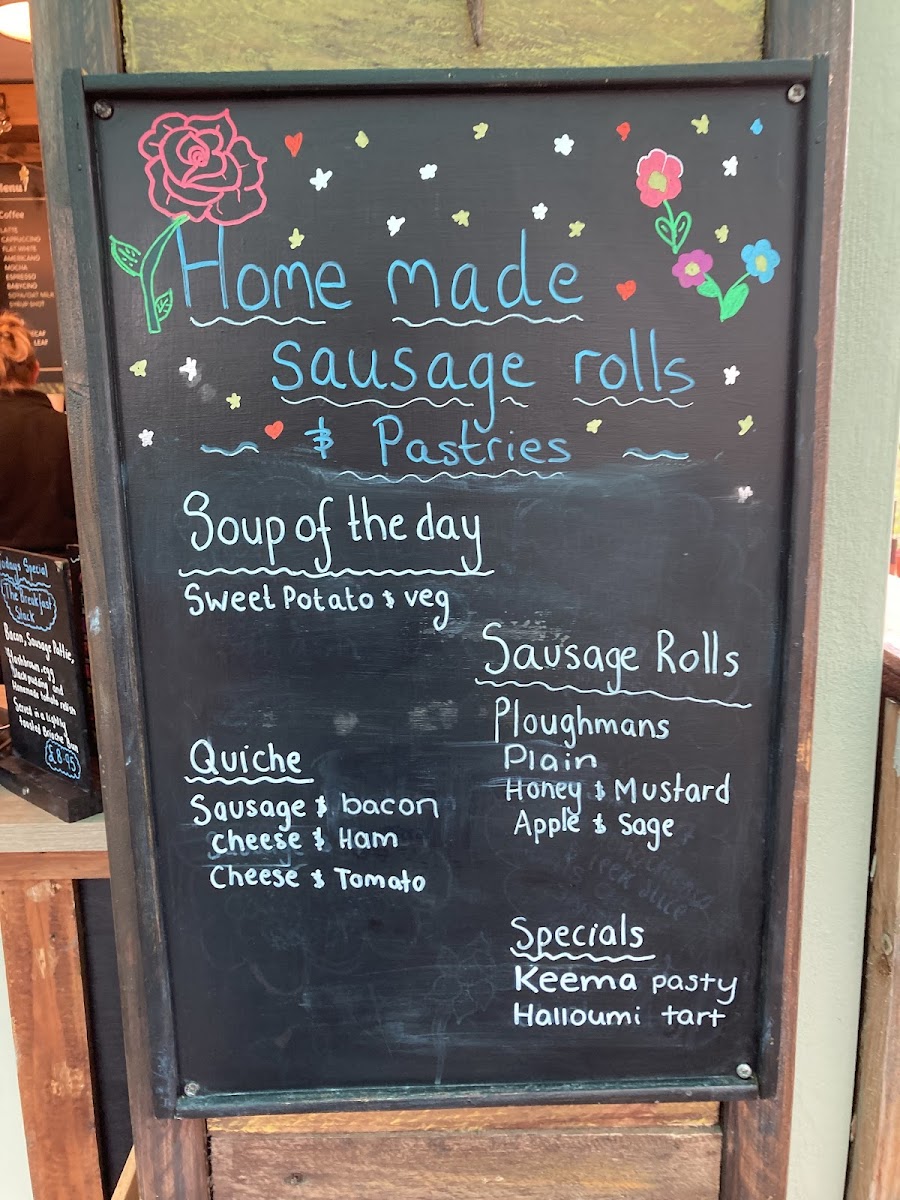 Home made
sausage rolls
& Pastries
Soup of the day
Sweet Potato & veg
Sausage Rolls
Ploughmans
Plain
Honey & Mustard
Apple & Sage
Quiche
Sausage & bacon
Cheese & Ham
Cheese & Tomato
Specials
Keema pasty
Halloumi tart
Menu
Coffee
LATTE
CAPPUCCINO
FLAT WHITE
AMERICANO
MOCHA
ESPRESSO
BABYCINO
SOYA/OAT MILK
SYRUP SHOT
Todays Special
The Breakfast
Stack
Bacon, Sausage Pattie,
Hashbrown, egg
Black pudding and
Homemade tomato relish
Served in a lightly
toasted Brioche Bun
£8.95